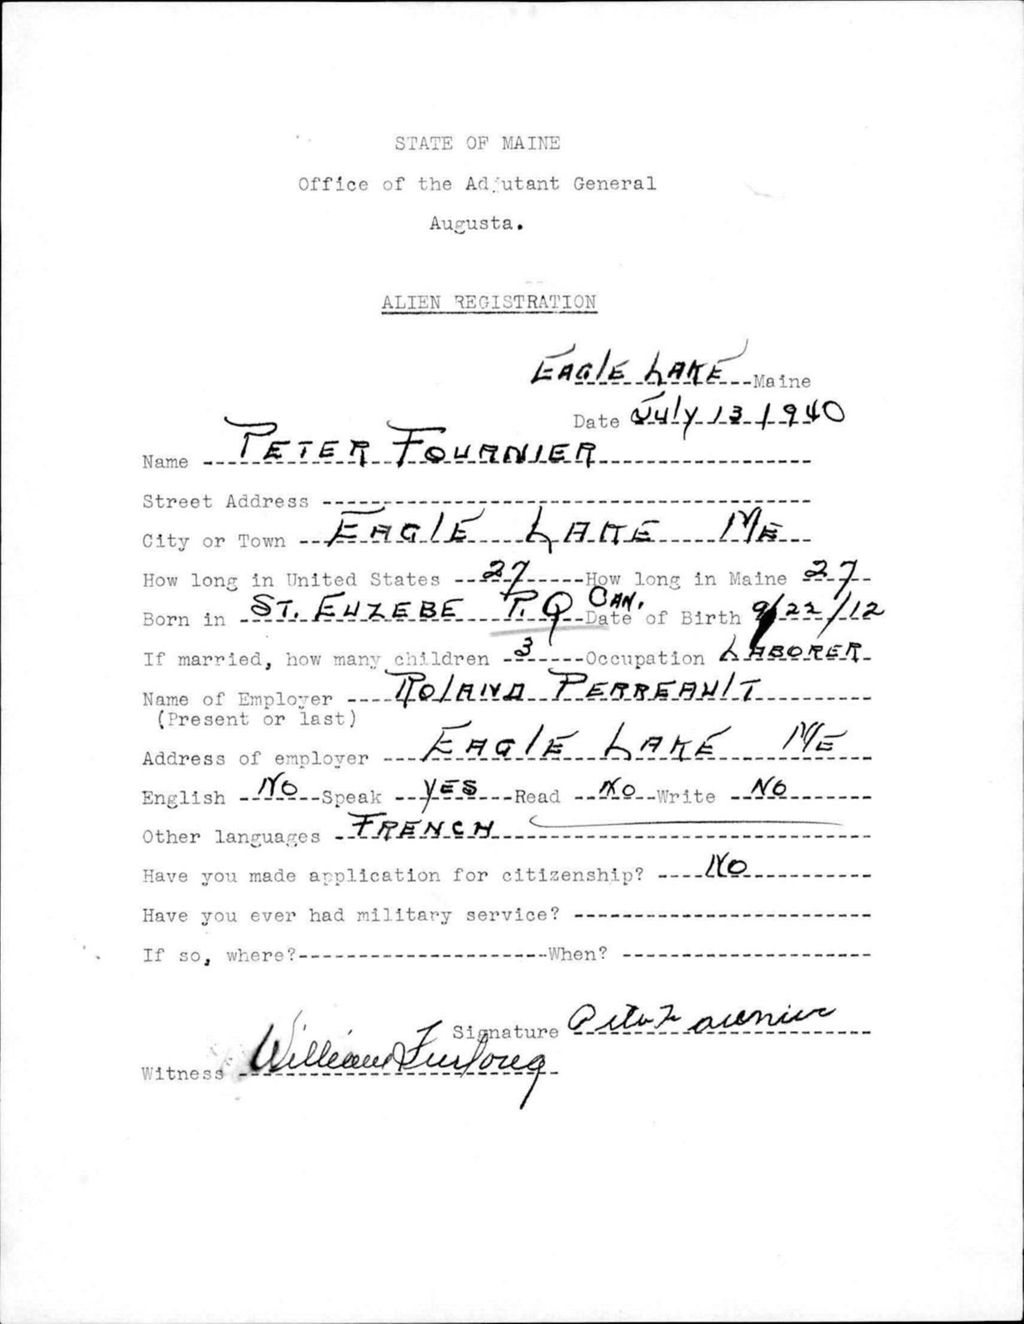 STATE OF MAINE
Office of the Adjutant General
Augusta.
ALIEN REGISTRATION
EAGlE LAKE Maine
Date July 13 1940
Name PETER FOURNIER
Street Address
City or Town EAGlE LAKE ME
How long in United States 27 How long in Maine 27
Born in ST. EUZEBE P.Q CAN. Date of Birth 9/22/12
If married, how many children 3 Occupation LABORER
Name of Employer ROlAND PERREAUlT
(Present or last)
Address of employer EAGlE LAKE ME
English No Speak yES Read No Write No
Other languages FRENCH
Have you made application for citizenship? No
Have you ever had military service?
If so, where? When?
Signature Peter Fournier
Witness William Furlong